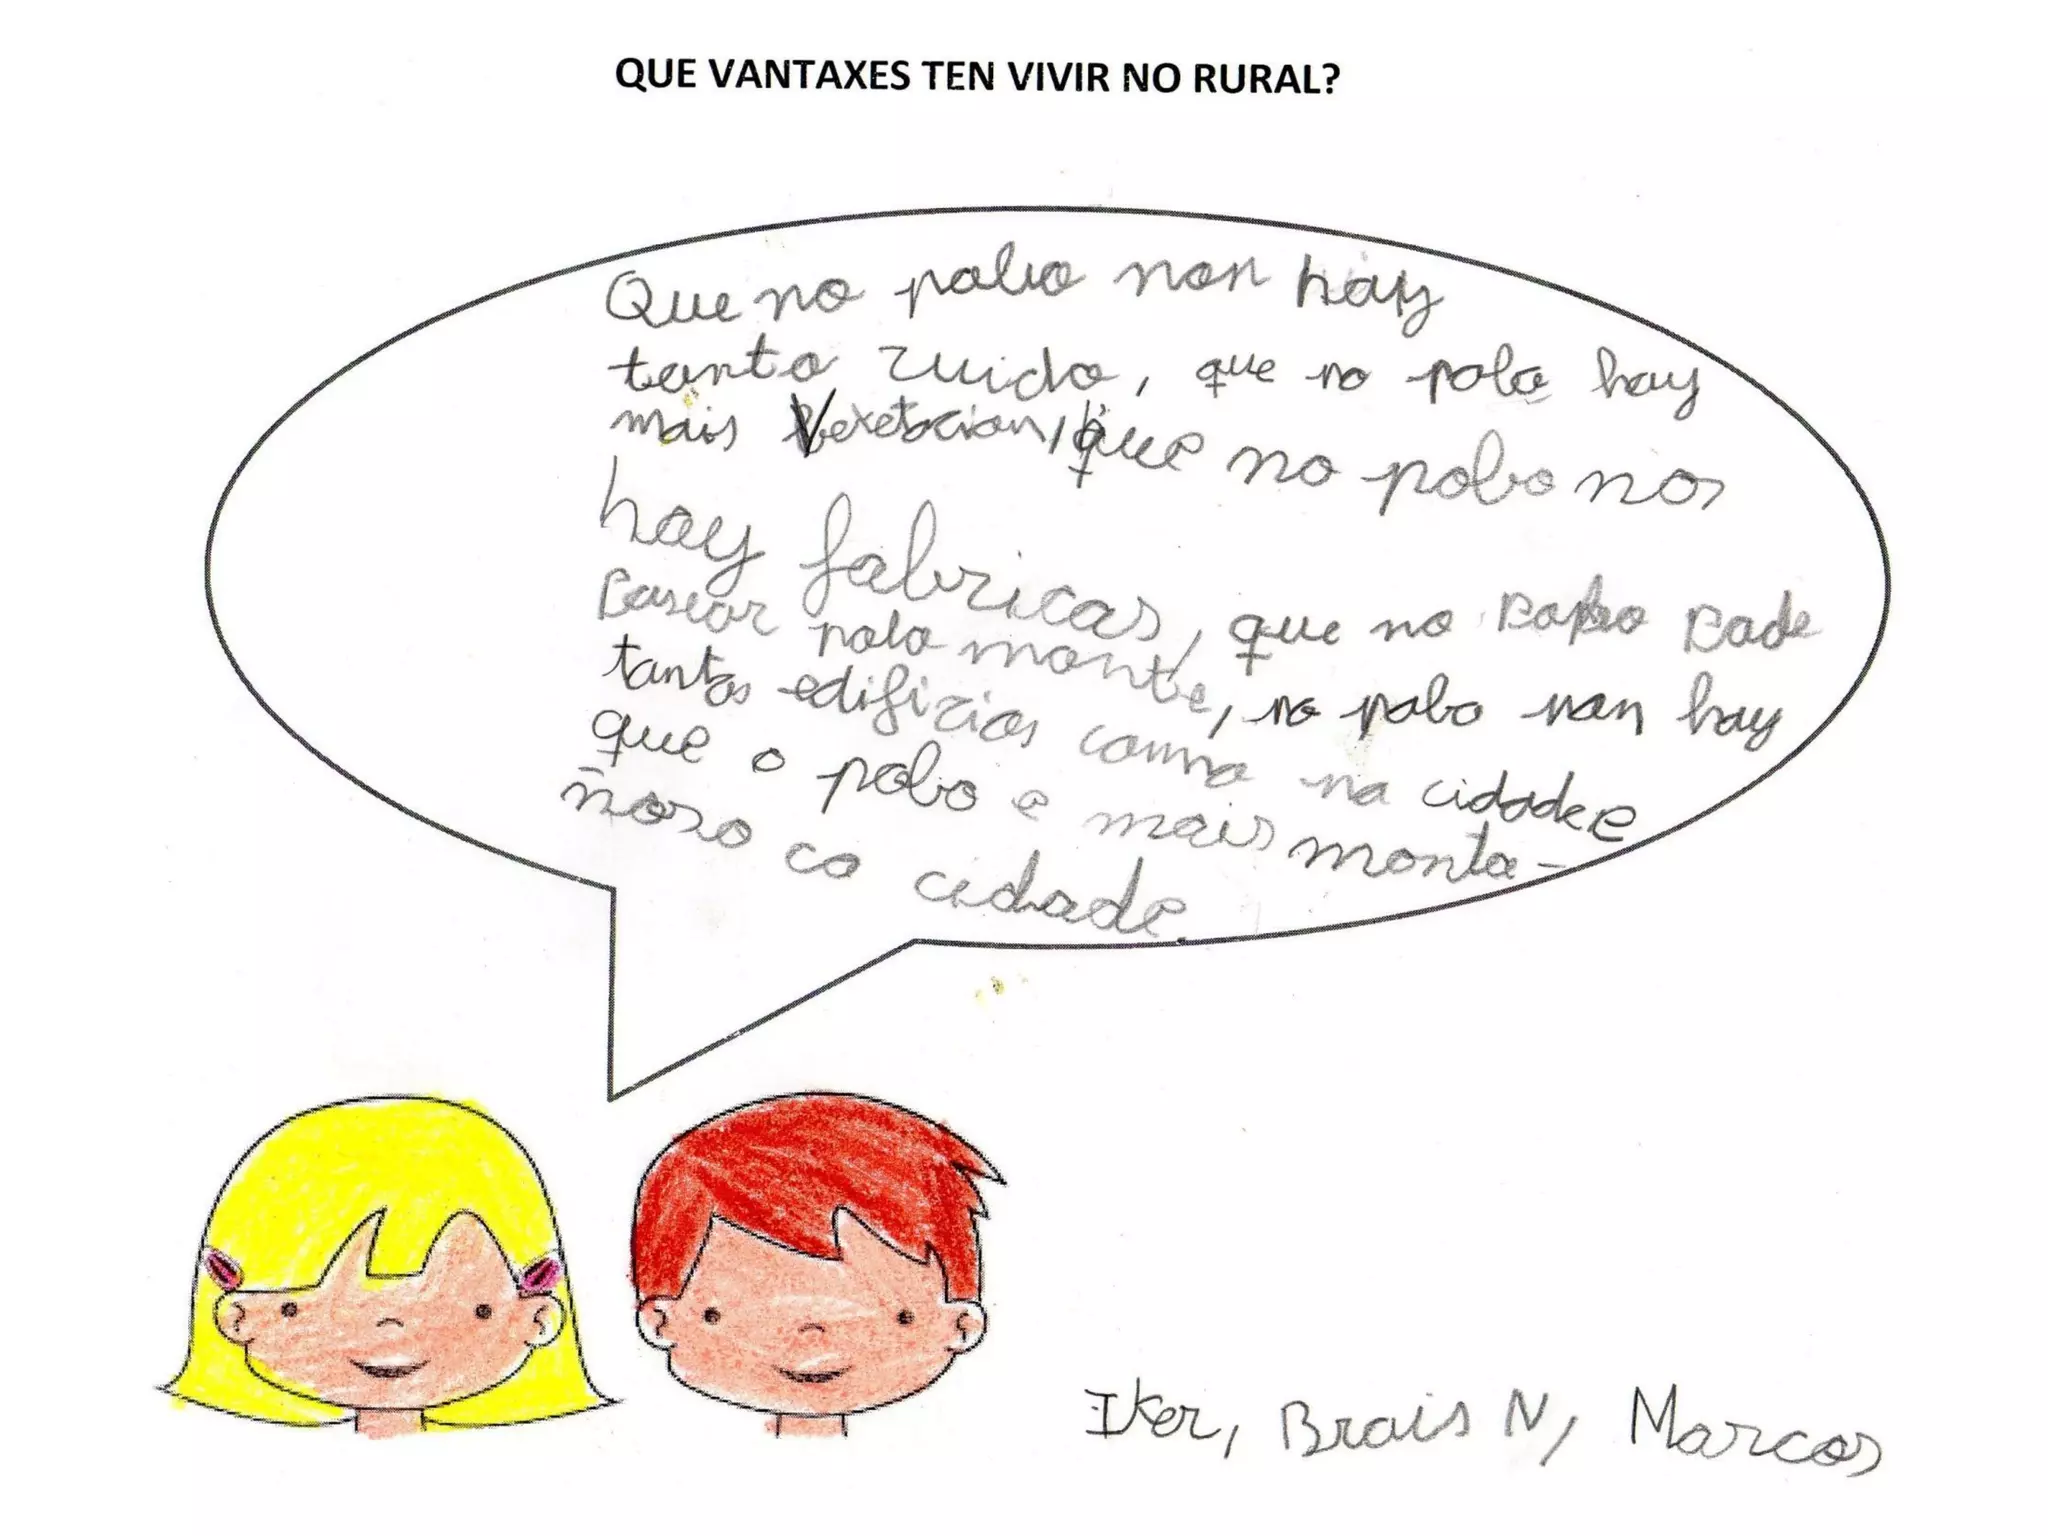 QUE VANTAXES TEN VIVIR NO RURAL?
Que no pobo non hay
tanto ruido, que no pobo hay
mais Vexetacion, que no pobo non
hay fabricas, que no pobo pode
pasear polo monte, no pobo non hay
tantos edifizios como na cidade e
que o pobo e mais monta-
ñoso ca cidade.
Iker, Brais N, Marcos